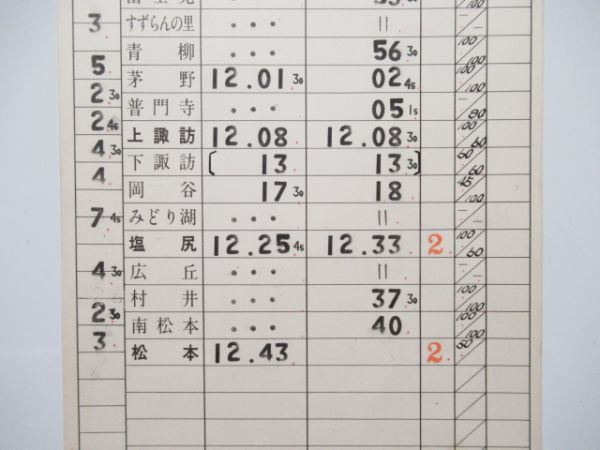 3 すずらんの里 ・・・ 〃
青柳 ・・・ 56 30 100
5 100
茅野 12.01 30 02 45 100
2 30 100
普門寺 ・・・ 05 15
2 45 90
上諏訪 12.08 12.08 30 100
4 30 60
下諏訪 〔 13 13 30〕 60
4 60
岡谷 17 30 18 45
100
7 45 みどり湖 ・・・ 〃
塩尻 12.25 45 12.33 2 100
60
4 30 広丘 ・・・ 〃
村井 ・・・ 37 30 100
2 30 100
南松本 ・・・ 40 100
3 100
松本 12.43 2 50